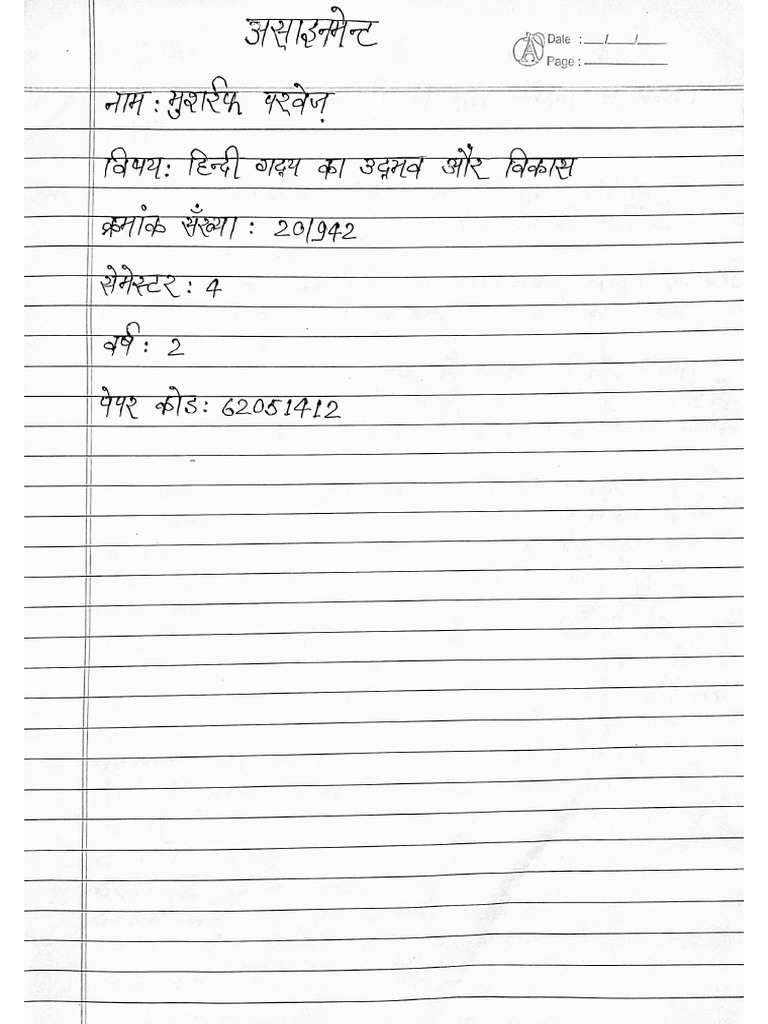 असाइनमेन्ट
Date : __/__/__
Page : ________
नाम : मुशर्रफ परवेज़
विषय : हिन्दी गद्य का उद्भव और विकास
क्रमांक सँख्या : 20/942
सेमेस्टर : 4
वर्ष : 2
पेपर कोड : 62051412